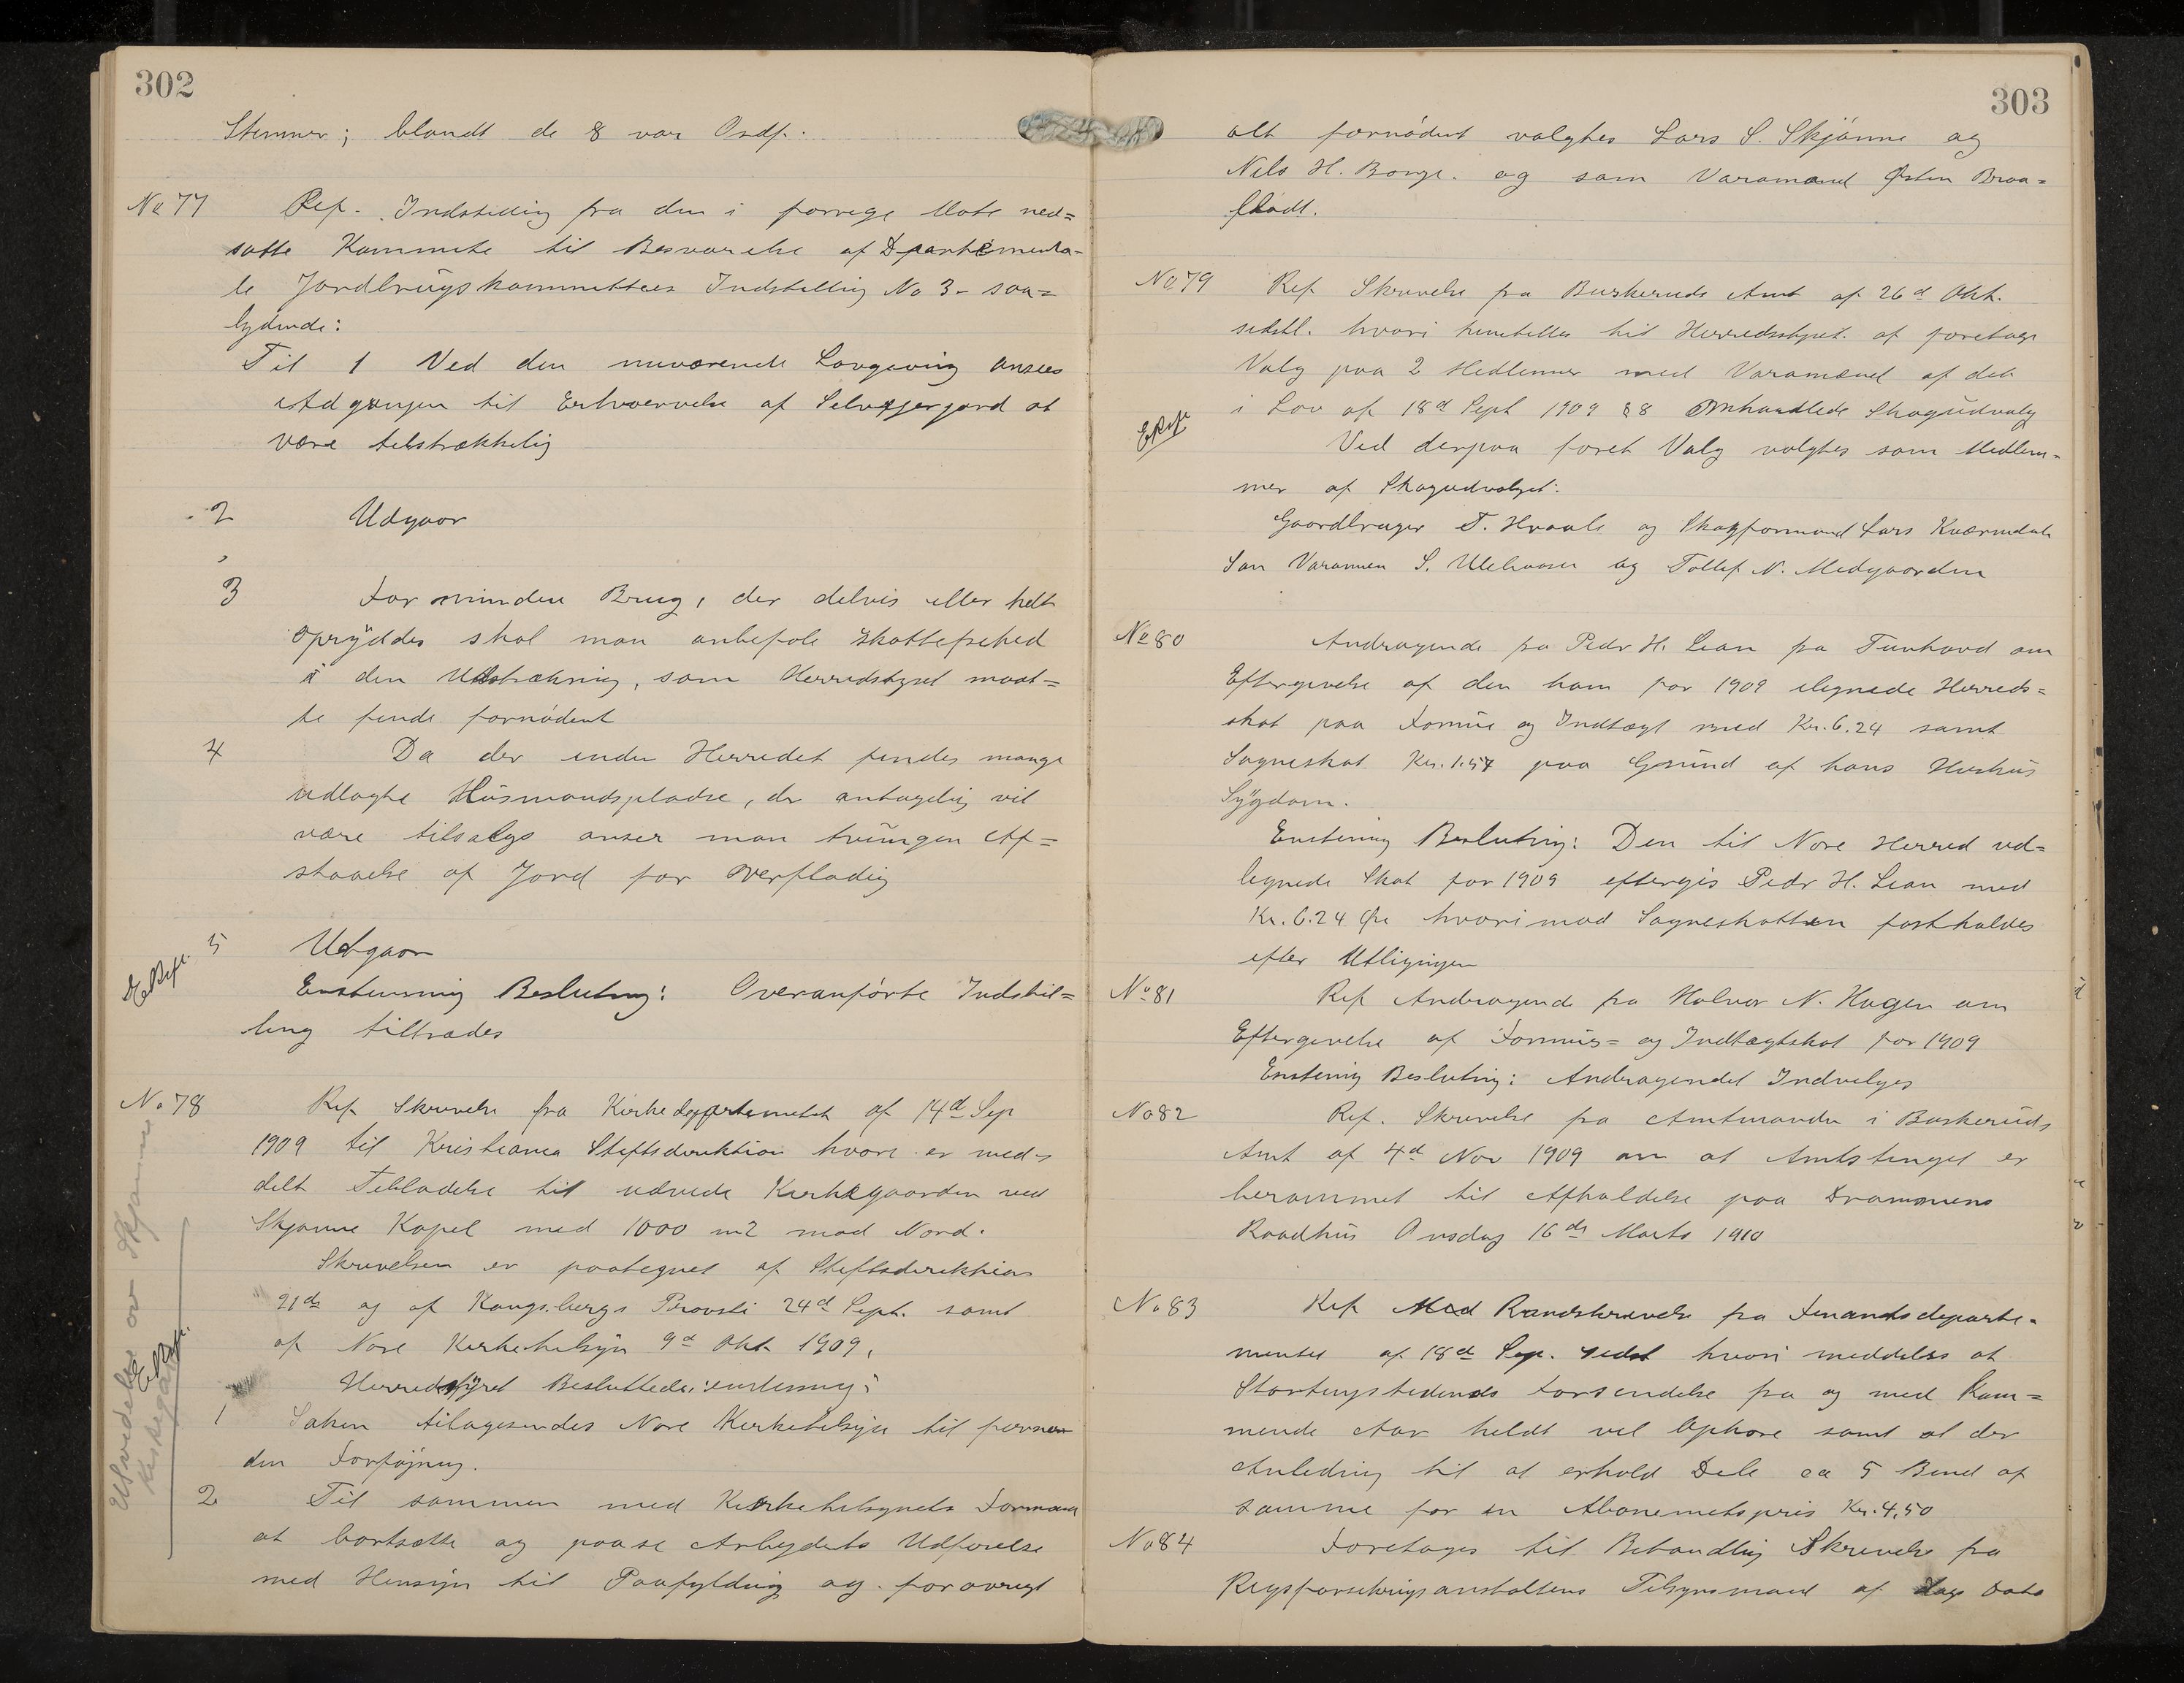 302
Stemmer; blandt de 8 var Ordf.
No 77 Ref. Indstilling fra den i forrige Møte ned=
satte Kommite til Besvarelse af Departementa-
le Jordbrugskommitteens Indstilling No 3 - saa=
lydende:
Til 1 Ved den nuværende Lovgivning ansees
Adgangen til Erhvervelse af Selvejerjord at
være tilstrækkelig
2 Udgaar
3 For mindre Brug, der delvis eller helt
opryddes skal man anbefale skattefrihed
i den Udstrækning, som Herredstyret maat=
te finde fornødent
4 Da der inden Herredet findes mange
udlagte Husmandspladse, der antagelig vil
være tilsalgs anser man tvungen Af=
staaelse af Jord for overflødig
5 Udgaar
E. Refr.
Enstemmig Beslutning: Overanførte Indstil=
ling tiltrædes
No 78 Ref Skrivelse fra Kirkedepartementet af 14d Sep
1909 til Kristiania Stiftsdirektion hvori er med-
delt Tilladelse til udvide Kirkegaarden ved
Skjønne Kapel med 1000 m2 mod Nord.
Skrivelsen er paategnet af Stiftsdirektion
21de og af Kongsbergs Provsti 24d Sept. samt
af Nore Kirketilsyn 9d Okt 1909.
Herredstyret Besluttede: enstemmig:
1 Saken tilagesendes Nore Kirketilsyn til fornøn
den Forføjning.
2 Til sammen med Kirketilsynets Formann
at bortsætte og paase Arbejdets Udførelse
med Hensyn til Paafylding og forøvrigt
Utvidelse av Skjønne
Kirkegaard
E. Refr.
303
alt fornødent valgtes Lars S. Skjønne og
Nils H. Borge. og som Varamand Østen Braa=
flådt.
No 79 Ref Skrivelse fra Buskeruds Amt af 26d Okt.
sidstl. hvori henstilles til Herredsstyret at foretage
Valg paa 2 Medlemmer med Varamænd af det
i Lov af 18d Sept 1909 § 8 Omhandlede Skogudvalg
E. Refr
Ved derpaa foret Valg valgtes som Medlem-
mer af Skogudvalget:
Gaardbruger T. Hvaale og Skogformand Lars Kværndale
Som Varamen S. Ulehaasen og Tollef N. Medgaarden
No 80 Andragende fra Peder H. Lian fra Tunhovd om
Eftergivelse af den ham for 1909 ilignede Herreds=
skat paa Formue og Indtægt med Kr. 6.24 samt
Sogneskat Kr. 1.57 paa Grund af hans Huskus
Sygdom.
Enstemig Beslutning: Den til Nore Herred ud=
lignede Skat for 1909 eftergis Peder H. Lian med
Kr. 6.24 Øre hvorimod Sogneskatten fastholdes
efter Utligningen
No 81 Ref Andragende fra Halvor N. Hagen om
Eftergivelse af Formues= og Indtægtskat for 1909
Enstemig Beslutnig: Andragendet Indvelges
No 82 Ref. Skrivelse fra Amtmanden i Buskeruds
Amt af 4d Nov 1909 om at Amtstinget er
berammet til Afholdelse paa Drammens
Raadhus Onsdag 16de Marts 1910
No 83 Ref Med Rundskrivelse fra Finansdeparte-
mentet af 18de Sep. sidst hvori meddeles at
Stortingstidends Forsendelse fra og med Kom=
mende Aar heldt vel Ophøre samt at der
Anledning til at erhold Dele ca 5 Bind af
samme for en Abonemetspris Kr. 4,50
No 84 Foretages til Behandling Skrivelse fra
Rigsforsikrigsanstaltens Tilsynsmand af Dags Dato